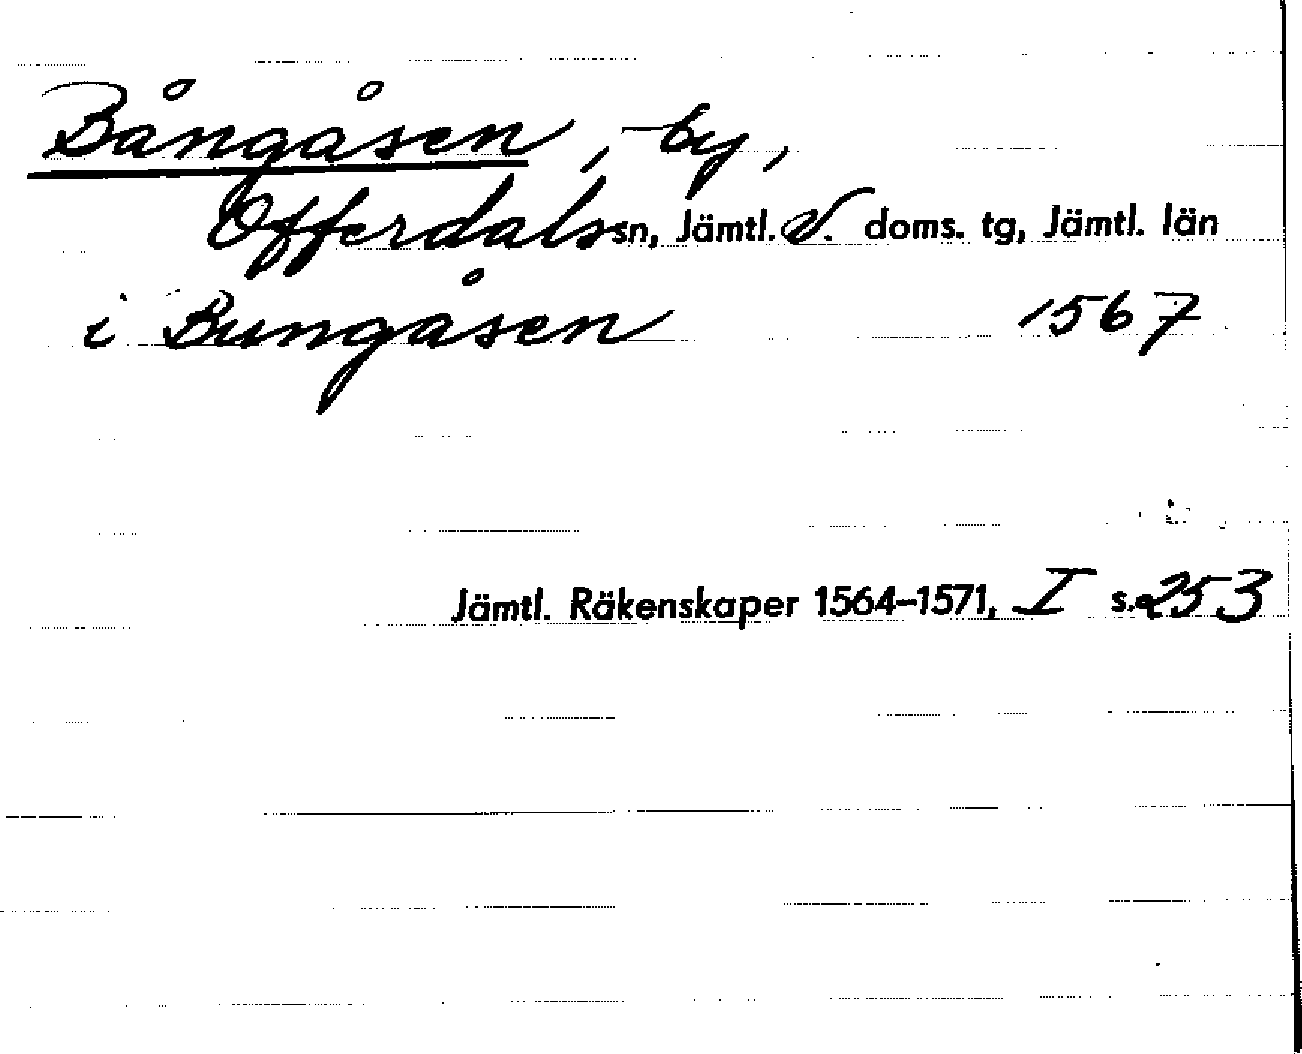 Bångåsen, by,
Offerdals sn, Jämtl. V. doms. tg, Jämtl. län
i Bungåsen 1567
Jämtl. Räkenskaper 1564–1571, I s. 253